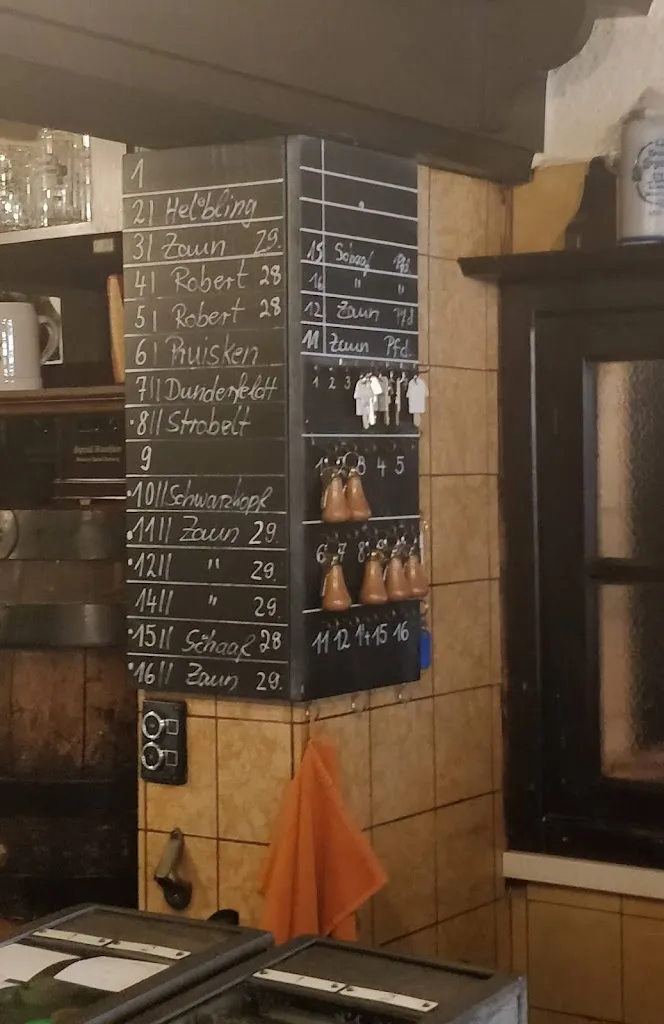 1
2| Helbling
3| Zaun 29.
4| Robert 28
5| Robert 28
6| Pruisken
7|| Dunderfeldt
8|| Strobelt
9
10|| Schwarzkopf
11|| Zaun 29.
12|| " 29.
14|| " 29.
15|| Schaaf 28
16|| Zaun 29.
15 Schaaf Pfd.
16 " "
12 Zaun Pfd
11 Zaun Pfd.
1 2 3
1 2 3 4 5
6 7 8
11 12 14 15 16